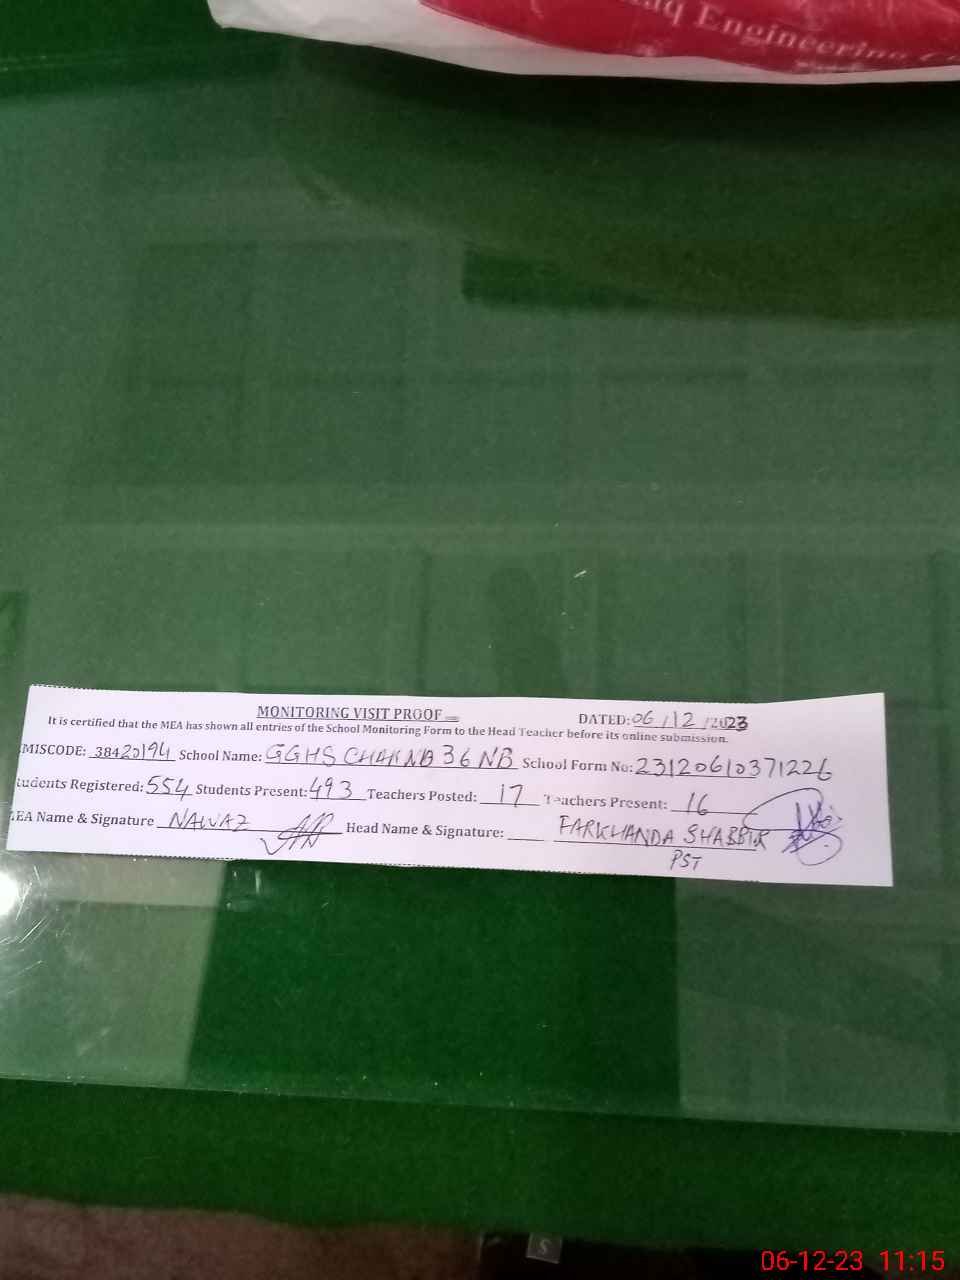 Engineering
MONITORING VISIT PROOF
DATED: 06/12/2023
It is certified that the MEA has shown all entries of the School Monitoring Form to the Head Teacher before its online submission.
MISCODE: 38420194 School Name: GGHS CHAK NO 36 NB School Form No: 23120610371226
tudents Registered: 554 Students Present: 493 Teachers Posted: 17 Teachers Present: 16
EA Name & Signature NAWAZ Head Name & Signature: FARKHANDA SHABBIR
PST
S
06-12-23 11:15